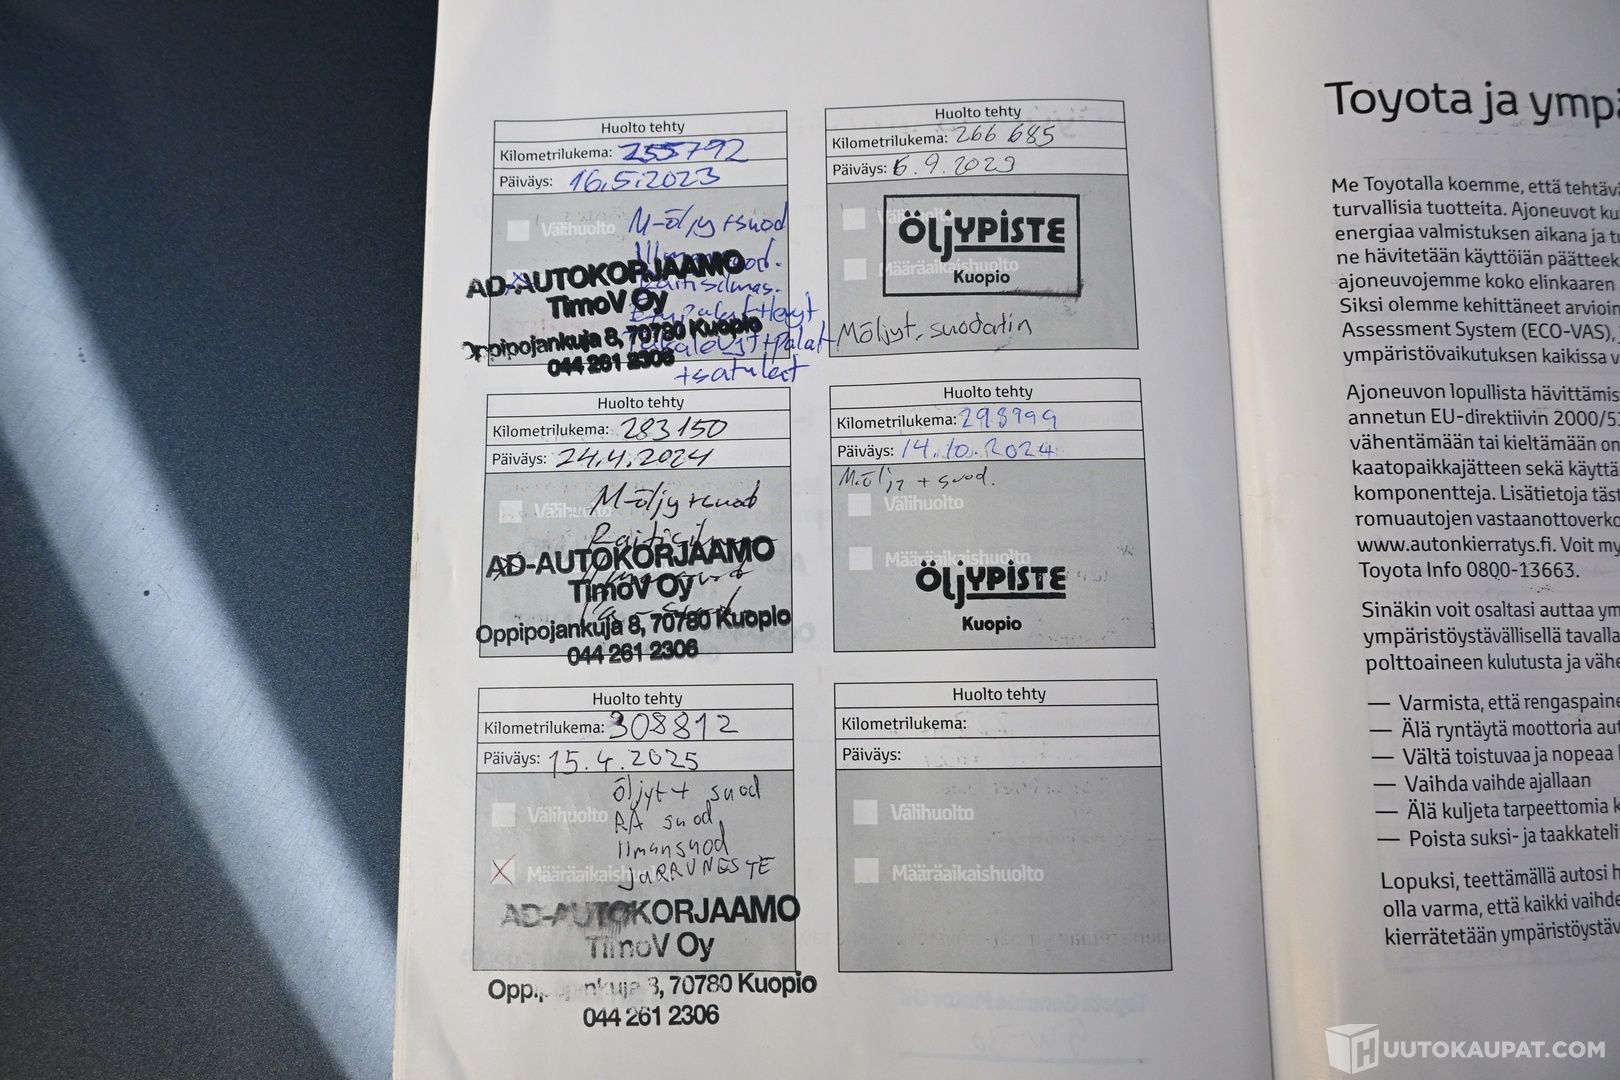 Huolto tehty
Kilometrilukema: 255792
Päiväys: 16.5.2023
M-öljy+suod
Välihuolto
AD-AUTOKORJAAMO
TimoV Oy
Oppipojankuja 8, 70780 Kuopio
044 261 2306
+satulat
Huolto tehty
Kilometrilukema: 266 685
Päiväys: 6.9.2023
ÖljYPISTE
Määräaikaishuolto
Kuopio
Möljyt, suodatin
Huolto tehty
Kilometrilukema: 283150
Päiväys: 24.4.2024
M-öljy+suod
Välihuolto
AD-AUTOKORJAAMO
TimoV Oy
Oppipojankuja 8, 70780 Kuopio
044 261 2306
Huolto tehty
Kilometrilukema: 298999
Päiväys: 14.10.2024
M.öljy + suod.
Välihuolto
Määräaikaishuolto
ÖljYPISTE
Kuopio
Huolto tehty
Kilometrilukema: 308812
Päiväys: 15.4.2025
öljyt + suod
Välihuolto RA suod,
ilmansuod
Määräaikaishuolto JARRUNESTE
AD-AUTOKORJAAMO
TimoV Oy
Oppipojankuja 8, 70780 Kuopio
044 261 2306
Huolto tehty
Kilometrilukema:
Päiväys:
Välihuolto
Määräaikaishuolto
Toyota ja ympä
Me Toyotalla koemme, että tehtävä
turvallisia tuotteita. Ajoneuvot ku
energiaa valmistuksen aikana ja tu
ne hävitetään käyttöiän päätteek
ajoneuvojemme koko elinkaaren
Siksi olemme kehittäneet arvioin
Assessment System (ECO-VAS),
ympäristövaikutuksen kaikissa v
Ajoneuvon lopullista hävittämis
annetun EU-direktiivin 2000/5
vähentämään tai kieltämään on
kaatopaikkajätteen sekä käyttä
komponentteja. Lisätietoja täst
romuautojen vastaanottoverko
www.autonkierratys.fi. Voit my
Toyota Info 0800-13663.
Sinäkin voit osaltasi auttaa ym
ympäristöystävällisellä tavalla
polttoaineen kulutusta ja vähe
— Varmista, että rengaspaine
— Älä ryntäytä moottoria aut
— Vältä toistuvaa ja nopeaa
— Vaihda vaihde ajallaan
— Älä kuljeta tarpeettomia k
— Poista suksi- ja taakkateli
Lopuksi, teettämällä autosi h
olla varma, että kaikki vaihde
kierrätetään ympäristöystäv
HUUTOKAUPAT.COM